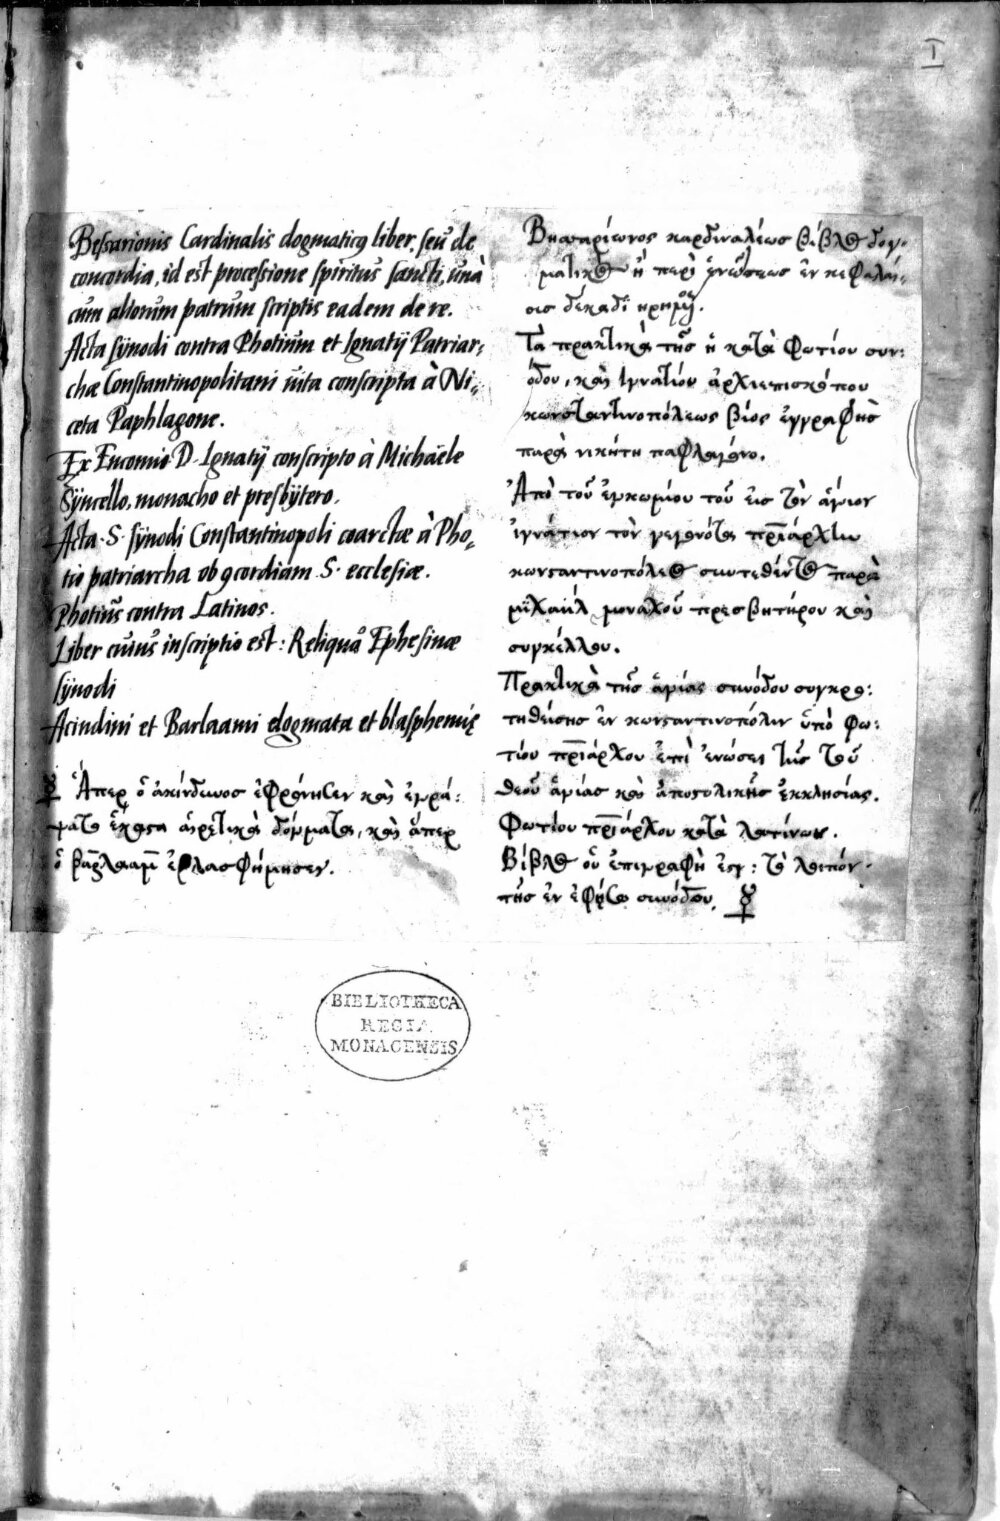 I
Bessarionis Cardinalis dogmaticq liber, seu de
concordia, id est processione spiritus sancti, unà
cum aliorum patrum scriptis eadem de re.
Acta synodi contra Photium et Ignatij Patriar:
chæ Constantinopolitani uita conscripta à Ni:
ceta Paphlagone.
Ex Encomio D. Ignatij conscripto à Michaële
Syncello, monacho et presbytero.
Acta S. synodi Constantinopoli coarctæ à Pho:
tio patriarcha ob 9cordiam S. ecclesiæ.
Photius contra Latinos.
Liber cuius inscriptio est: Reliqua Ephesinæ
synodi
Acindini et Barlaami dogmata et blasphemię
Ἅπερ ὁ ἀκίνδυνος ἐφρόνησεν καὶ ἐγρά:
ψατο ἕκαστα αἱρετικὰ δόγματα, καὶ ἅπερ
ὁ βαρλαὰμ ἐβλασφήμησεν.
Βησαρίωνος καρδιναλέως βίβλος δογ:
ματικὸς ἢ περὶ ἑνώσεως ἐν κεφαλαί:
οις δέκαδι
Τὰ πρακτικὰ τῆς ἡ κατὰ Φωτίου συν:
όδου, καὶ ἰγνατίου ἀρχιεπισκόπου
κωνσταντινοπόλεως βίος ἐγγραφῆς
παρὰ νικήτη παφλαγόνο.
Ἀπὸ τοῦ ἐγκωμίου τοῦ εἰς τὸν ἅγιον
ἰγνάτιον τὸν γεγονότα πριάρχην
κωνσταντινοπόλεος συντεθέντος παρὰ
μιχαὴλ μοναχοῦ πρεσβητήρου καὶ
συγκέλλου.
Πρακτικὰ τῆς ἁγίας συνόδου συγκρο:
τηθείσης ἐν κωνσταντινοπόλιν ὑπὸ φω:
τίου πριάρχου ἐπὶ ἑνώσει τῆς τοῦ
θεοῦ ἁγίας καὶ ἀποστολικῆς ἐκκλησίας.
Φωτίου πριάρχου κατὰ λατίνων.
Βίβλος οὗ ἐπιγραφὴ ἐστ: τὸ λοιπόν
τῆς ἐν ἐφέσῳ συνόδου.
BIBLIOTHECA
REGIA
MONACENSIS